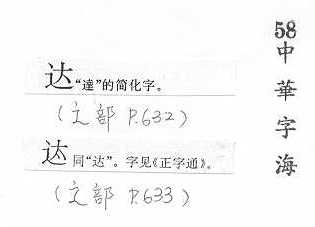 58
中華字海
达 “達”的简化字。
(辶部 P.632)
迖 同“达”。字见《正字通》。
(辶部 P.633)